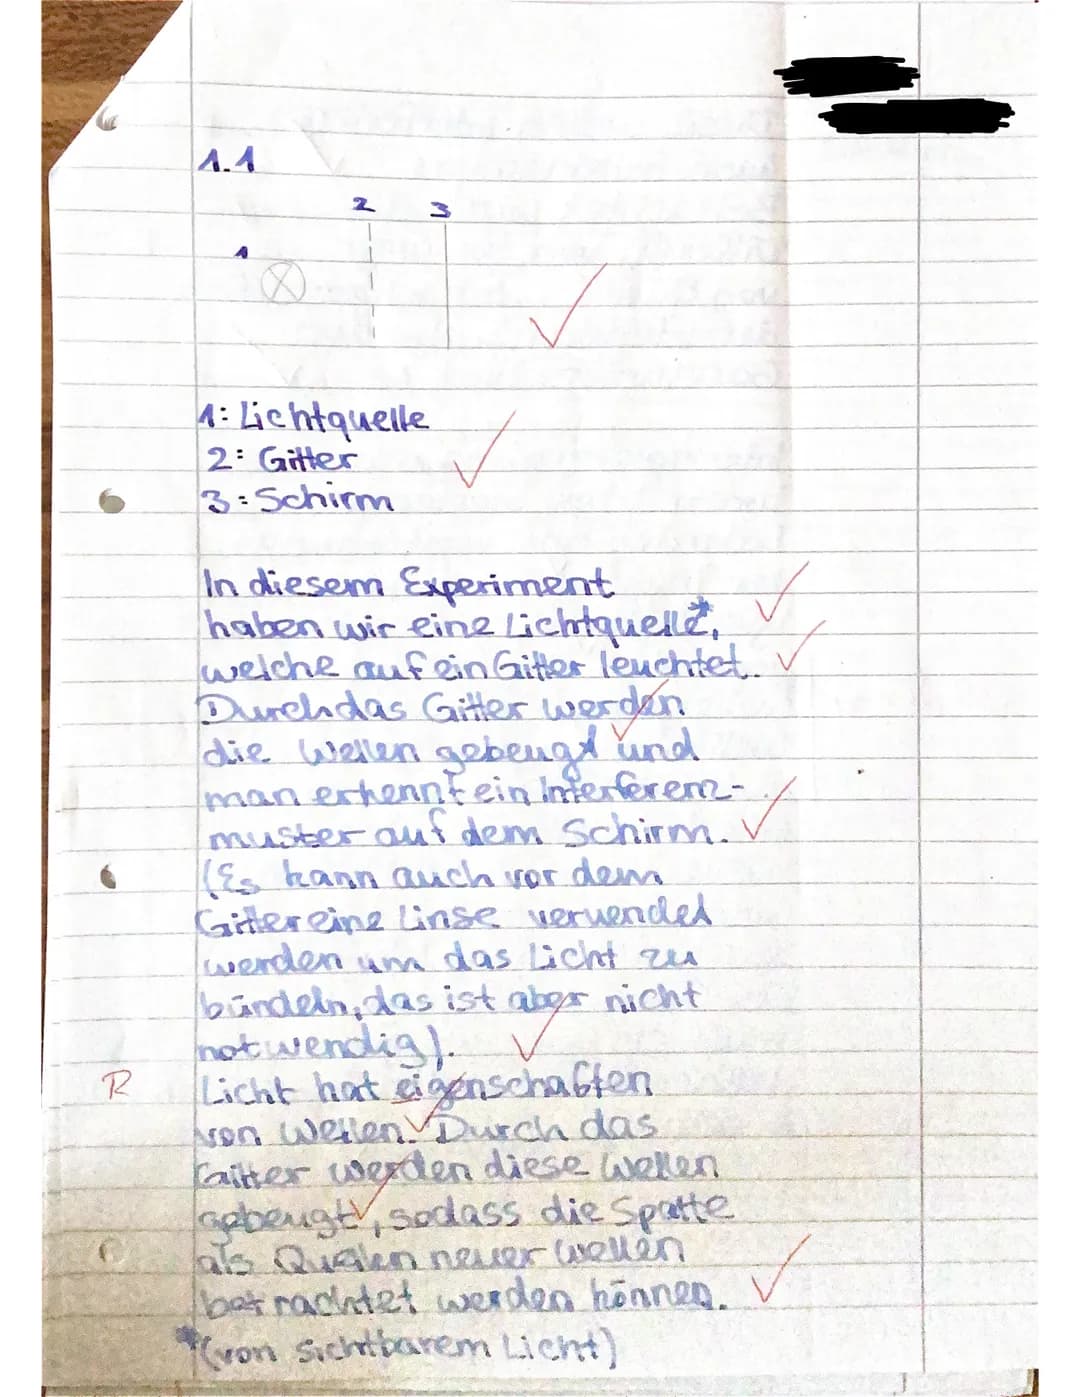 1.1
2 3
1
1: Lichtquelle
2: Gitter
3: Schirm
In diesem Experiment
haben wir eine Lichtquelle*,
welche auf ein Gitter leuchtet.
Durch das Gitter werden
die Wellen gebeugt und
man erkennt ein Interferenz-
muster auf dem Schirm.
(Es kann auch vor dem
Gitter eine Linse verwendet
werden um das Licht zu
bündeln, das ist aber nicht
notwendig).
R Licht hat eigenschaften
von Wellen. Durch das
Gitter werden diese Wellen
gebeugt, sodass die Spalte
als Quellen neuer Wellen
betrachtet werden können.
*(von sichtbarem Licht)